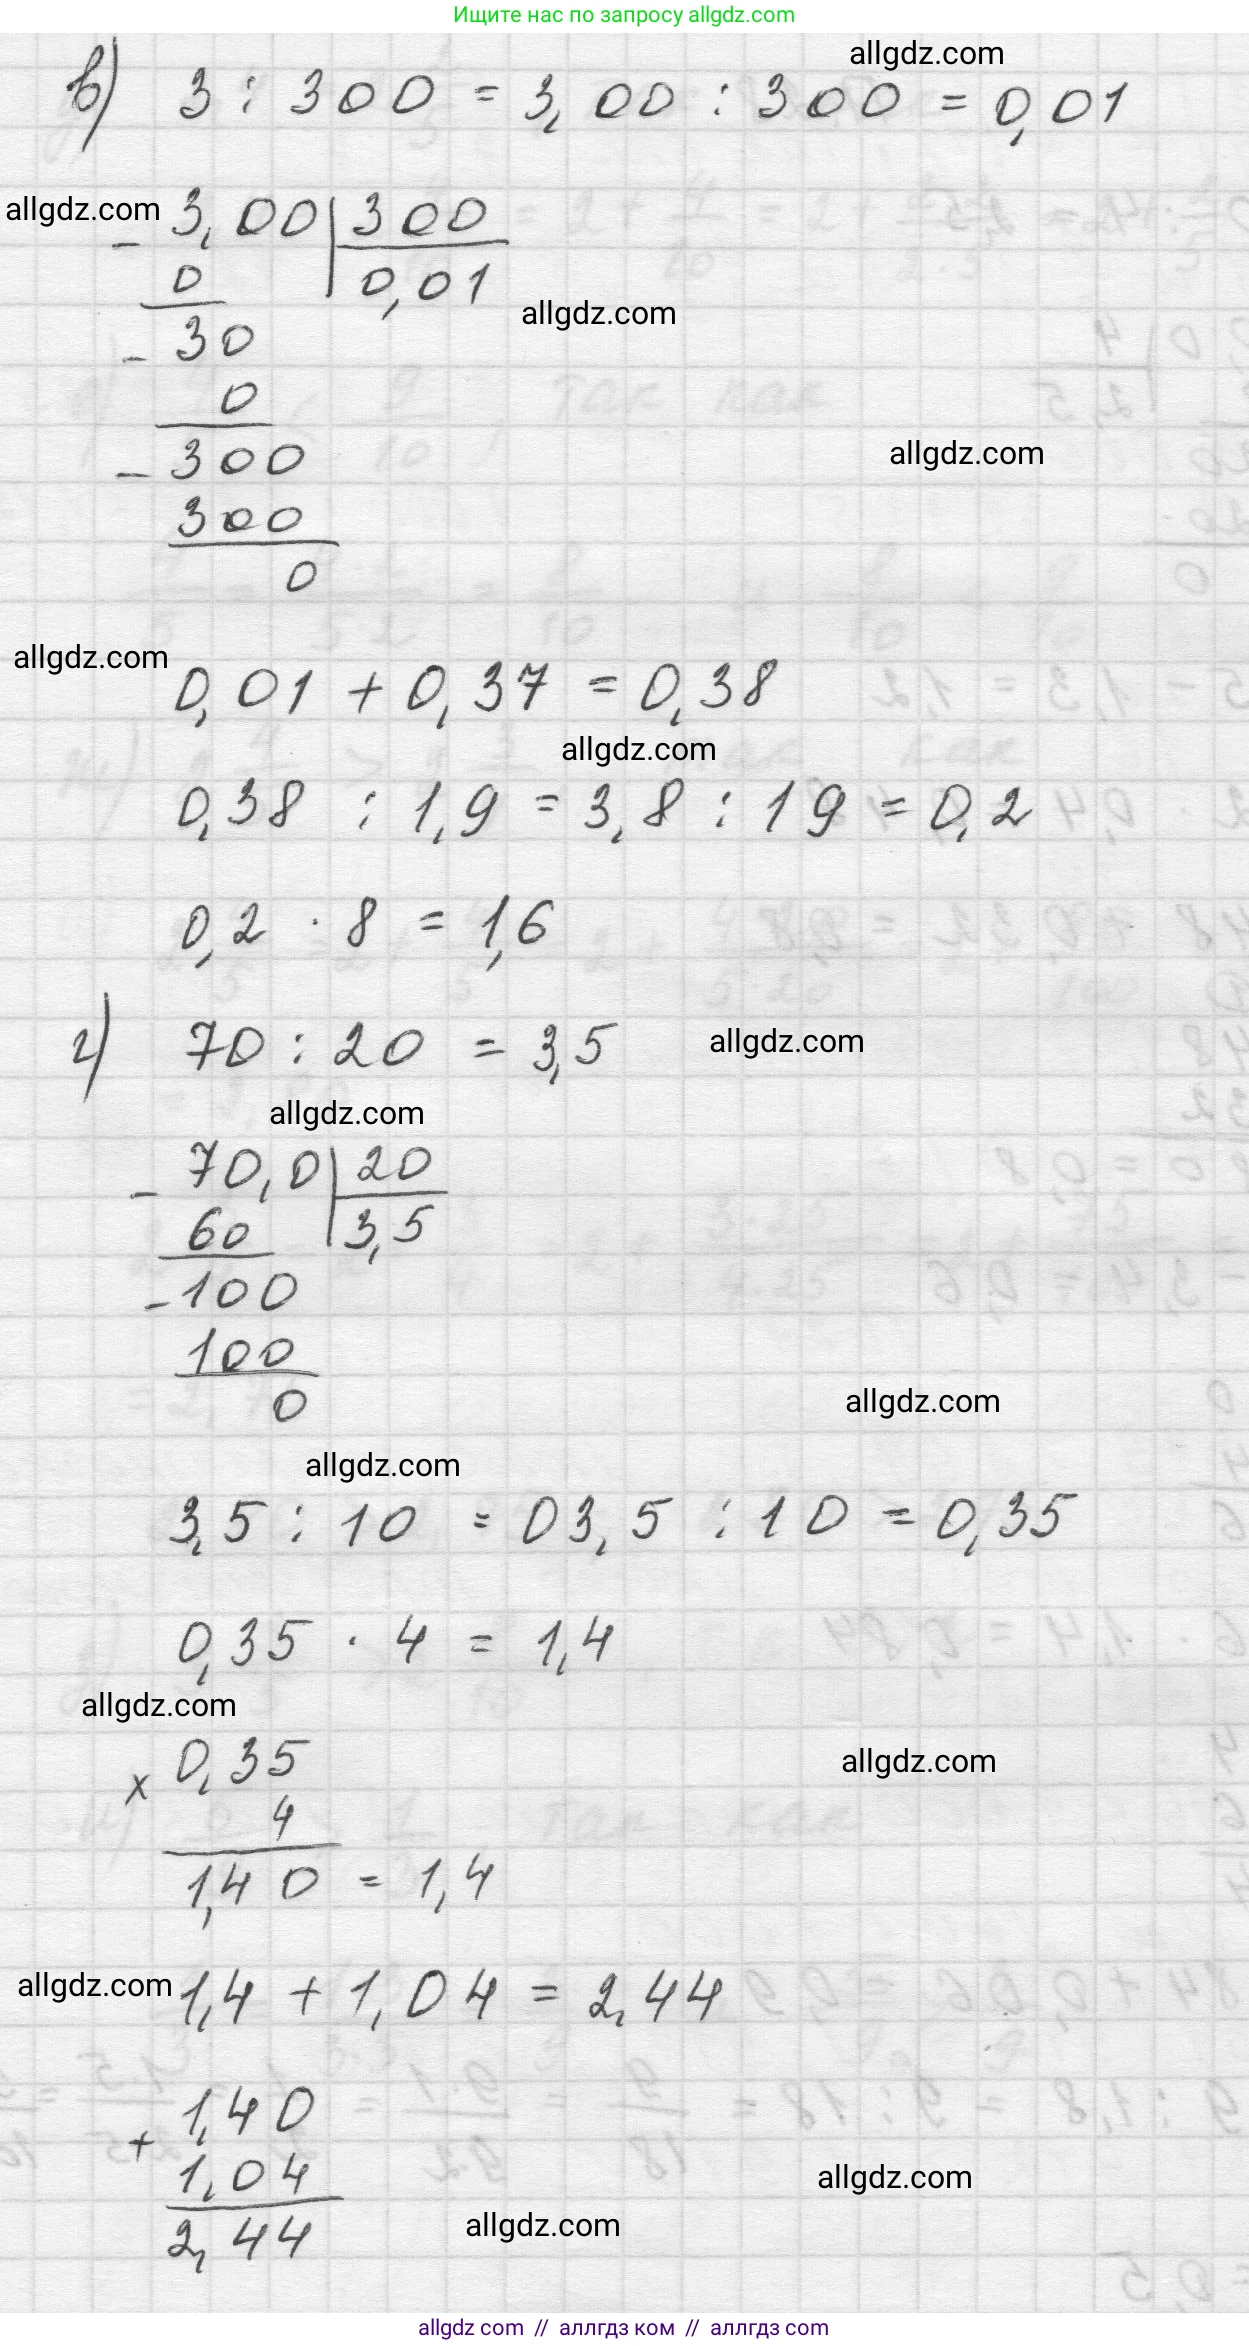 Ищите нас по запросу allgdz.com
allgdz.com
в) 3 : 300 = 3,00 : 300 = 0,01
allgdz.com
- 3,00 | 300
0 0,01
allgdz.com
- 30
0
- 300
allgdz.com
300
0
allgdz.com
0,01 + 0,37 = 0,38
allgdz.com
0,38 : 1,9 = 3,8 : 19 = 0,2
0,2 · 8 = 1,6
г) 70 : 20 = 3,5
allgdz.com
allgdz.com
- 70,0 | 20
60 3,5
- 100
100
0
allgdz.com
allgdz.com
3,5 : 10 = 03,5 : 10 = 0,35
0,35 · 4 = 1,4
allgdz.com
x 0,35
allgdz.com
4
1,40 = 1,4
allgdz.com
1,4 + 1,04 = 2,44
+ 1,40
1,04
allgdz.com
2,44
allgdz.com
allgdz.com // аллгдз ком // аллгдз.com